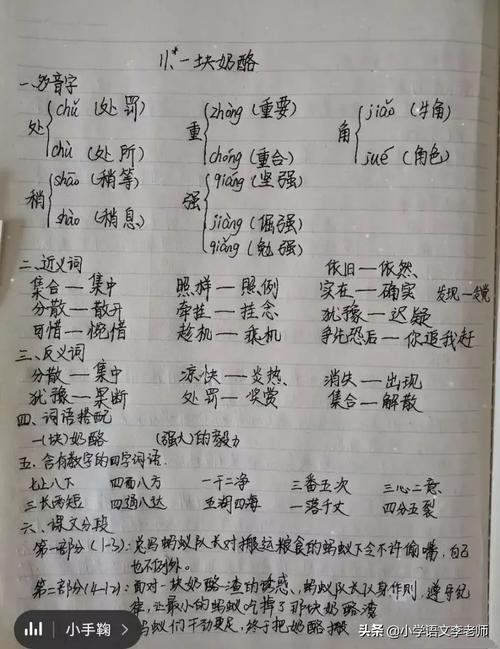 11.*一块奶酪
一、多音字
处 chǔ (处罚) chù (处所)
重 zhòng (重要) chóng (重合)
角 jiǎo (牛角) jué (角色)
稍 shāo (稍等) shào (稍息)
强 qiáng (坚强) jiàng (倔强) qiǎng (勉强)
二、近义词
依旧—依然
集合—集中 照样—照例 实在—确实 发现—发觉
分散—散开 牵挂—挂念 犹豫—迟疑
可惜—惋惜 趁机—乘机 争先恐后—你追我赶
三、反义词
分散—集中 凉快—炎热 消失—出现
犹豫—果断 处罚—奖赏 集合—解散
四、词语搭配
一(块)奶酪 (强大)的毅力
五、含有数字的四字词语
七上八下 四面八方 一干二净 三番五次 三心二意
三长两短 四通八达 五湖四海 一落千丈 四分五裂
六、课文分段
第一部分(1-3):总蚂蚁队长对搬运粮食的蚂蚁下令不许偷嘴,自己
也不例外。
第二部分(4-12):面对一块奶酪渣的诱惑、蚂蚁队长以身作则,遵守纪
律,让最小的蚂蚁吃掉了那块奶酪渣
蚂蚁们干劲更足,终于把奶酪搬
小手鞠
头条 @小学语文李老师